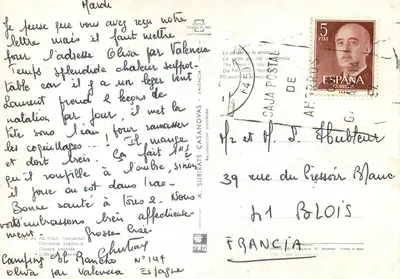 Mardi
Je pense que vous avez reçu notre
lettre mais il faut mettre
pour l'adresse Oliva par Valencia
Temps splendide chaleur suppor-
table car il y a un léger vent
Laurent prend 2 leçons de
natation par jour, il met la
tête sous l'eau, pour ramasser
les coquillages... Il mange
et dort bien. Ça fait
qu'il roupille à l'ombre, sinon
il joue ou est dans l'eau.
Bonne santé à tous 2. Nous
vous embrassons bien affectueuse
ment. Grosses bises
Camping El Rancho N° 147
Oliva par Valencia Espagne
A. SUBIRATS CASANOVAS - VALENCIA
CAJA POSTAL
DE
AHORROS
5
PTAS
ESPAÑA
CORREOS
Mr et Mme
39 rue du Pressoir Blanc
41 BLOIS
FRANCIA